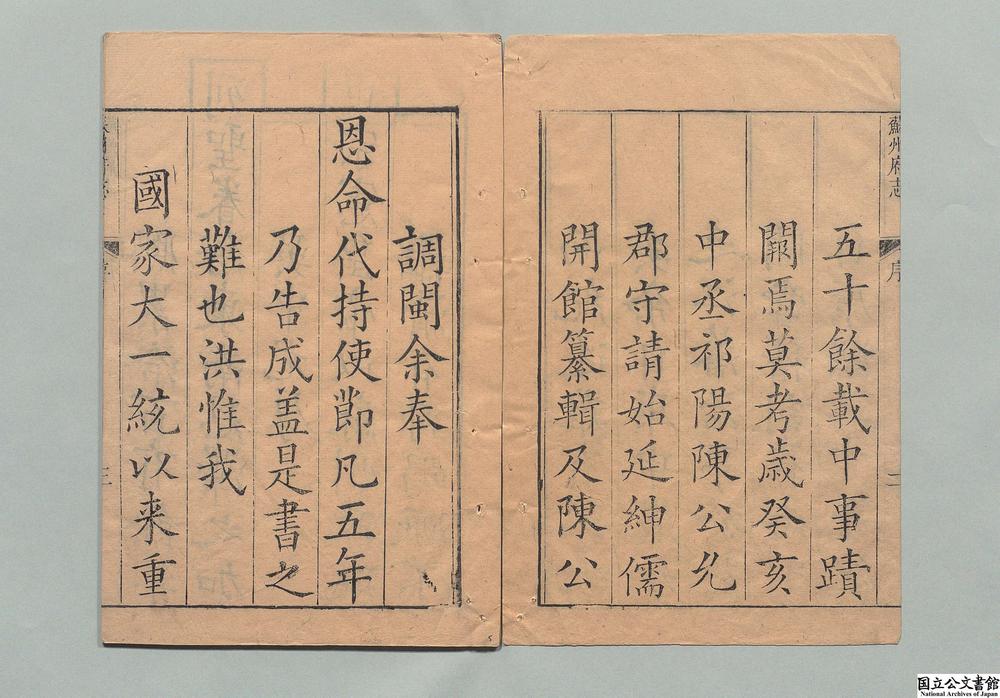 蘇州府志
序
二
五十餘載中事蹟
闕焉莫考歲癸亥
中丞祁陽陳公允
郡守請始延紳儒
開館纂輯及陳公
調閩余奉
恩命代持使節凡五年
乃告成盖是書之
難也洪惟我
國家大一統以来重
序
三
国立公文書館
National Archives of Japan